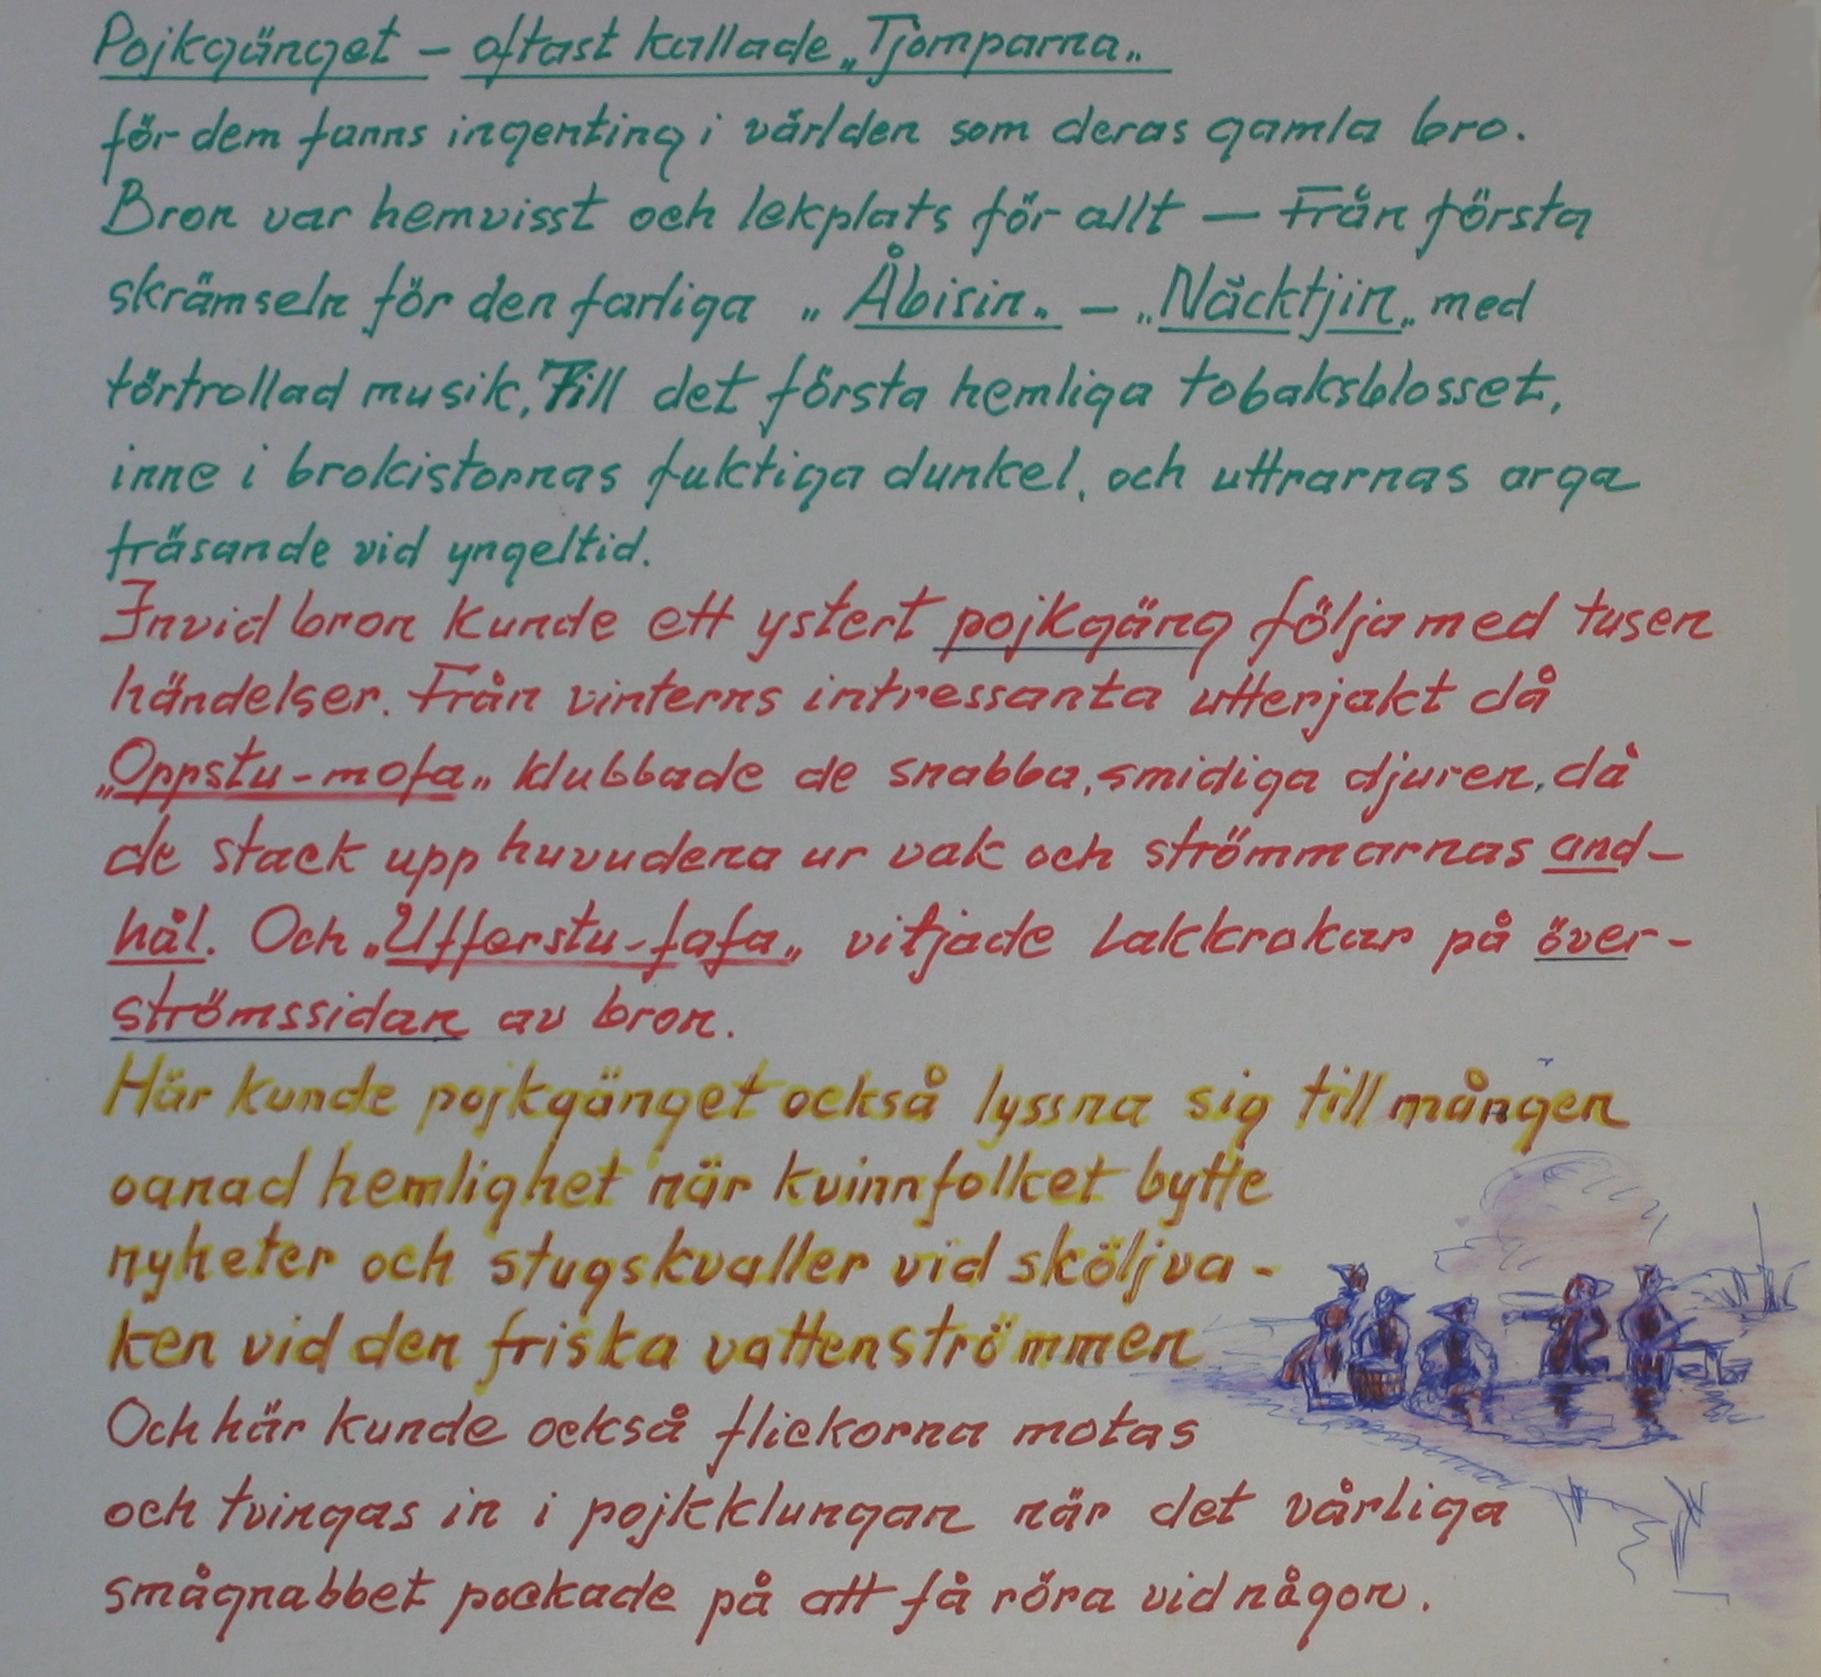 Pojkgänget – oftast kallade „Tjomparna„
för dem fanns ingenting i världen som deras gamla bro.
Bron var hemvisst och lekplats för allt — Från första
skrämseln för den farliga „Åbisin„ – „Näcktjin„ med
förtrollad musik, Till det första hemliga tobaksblosset,
inne i brokistornas fuktiga dunkel, och uttrarnas arga
fräsande vid yngeltid.
Invid bron kunde ett ystert pojkgäng följa med tusen
händelser. Från vinterns intressanta utterjakt då
„Oppstu-mofa„ klubbade de snabba, smidiga djuren, då
de stack upp huvudena ur vak och strömmarnas and-
hål. Och „Ufferstu-fafa„ vitjade Lakkrokar på över-
strömssidan av bron.
Här kunde pojkgänget också lyssna sig till mången
oanad hemlighet när kvinnfolket bytte
nyheter och stugskvaller vid sköljva-
ken vid den friska vattenströmmen
Och här kunde också flickorna motas
och tvingas in i pojkklungan när det vårliga
smågnabbet pockade på att få röra vid någon.